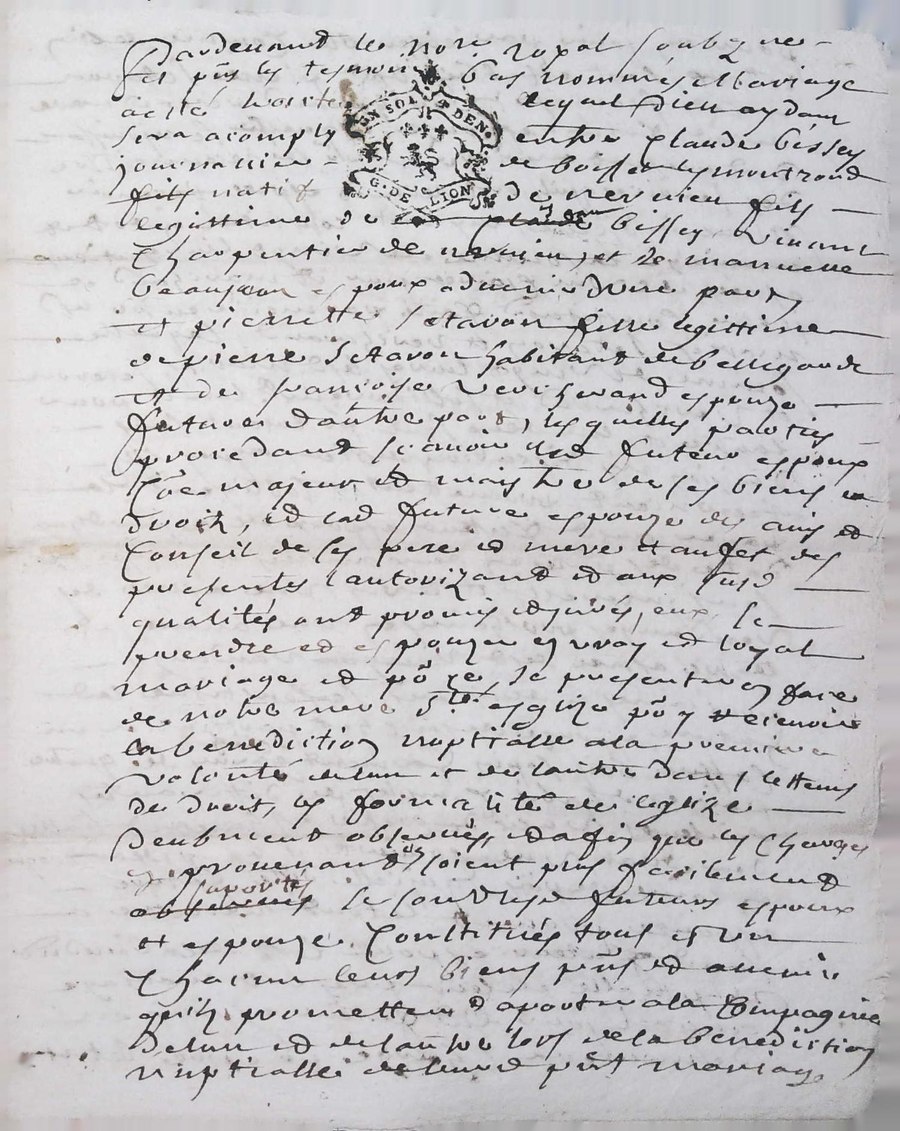 Pardevant le nore royal soubzne
et pns les tesmoins bas nommés Mariage
acité traité lequel dieu aydant
sera acomply entre claude bissey
journallier de boisset les montrond
fils natif de nervieu fils
legittime de claude bissey vivant
Charpentier de nervieu, et de
beaujeon espoux advenir dune part
et pierrette setavon fille legittime
de pierre setavon habitant de bellegarde
et de francoise espouze
future dautre part, lesquelles parties
procedant scavoir led futeur espoux
Coe majeur et maistre de ses biens et
droitz, et lad future espouze de avis et
Conseil de ses pere et mere et aufet des
presentes lautorizant et aux susd
qualités ont promis et jurés, eux se
prendre et espouzer en vray et loyal
mariage et po ce, se presenter en face
de notre mere ste esglize po y recevoir
la benediction nuptialle a la premiere
volonté de lun et de lautre dans le tems
de droit, les formalités de leglize
deubment observées, et afin que les Charges
en provenant soient plus facilement
suportés se sont lesd futeurs espoux
et espouze Constitués tous et un
Chacun leurs biens pns et avenir
quilz promettent daporter a la Compagnie
de lun et de lautre lors de la benediction
nuptialle de leurd pnt mariage
EN SOL 4 DEN.
G. DE LION